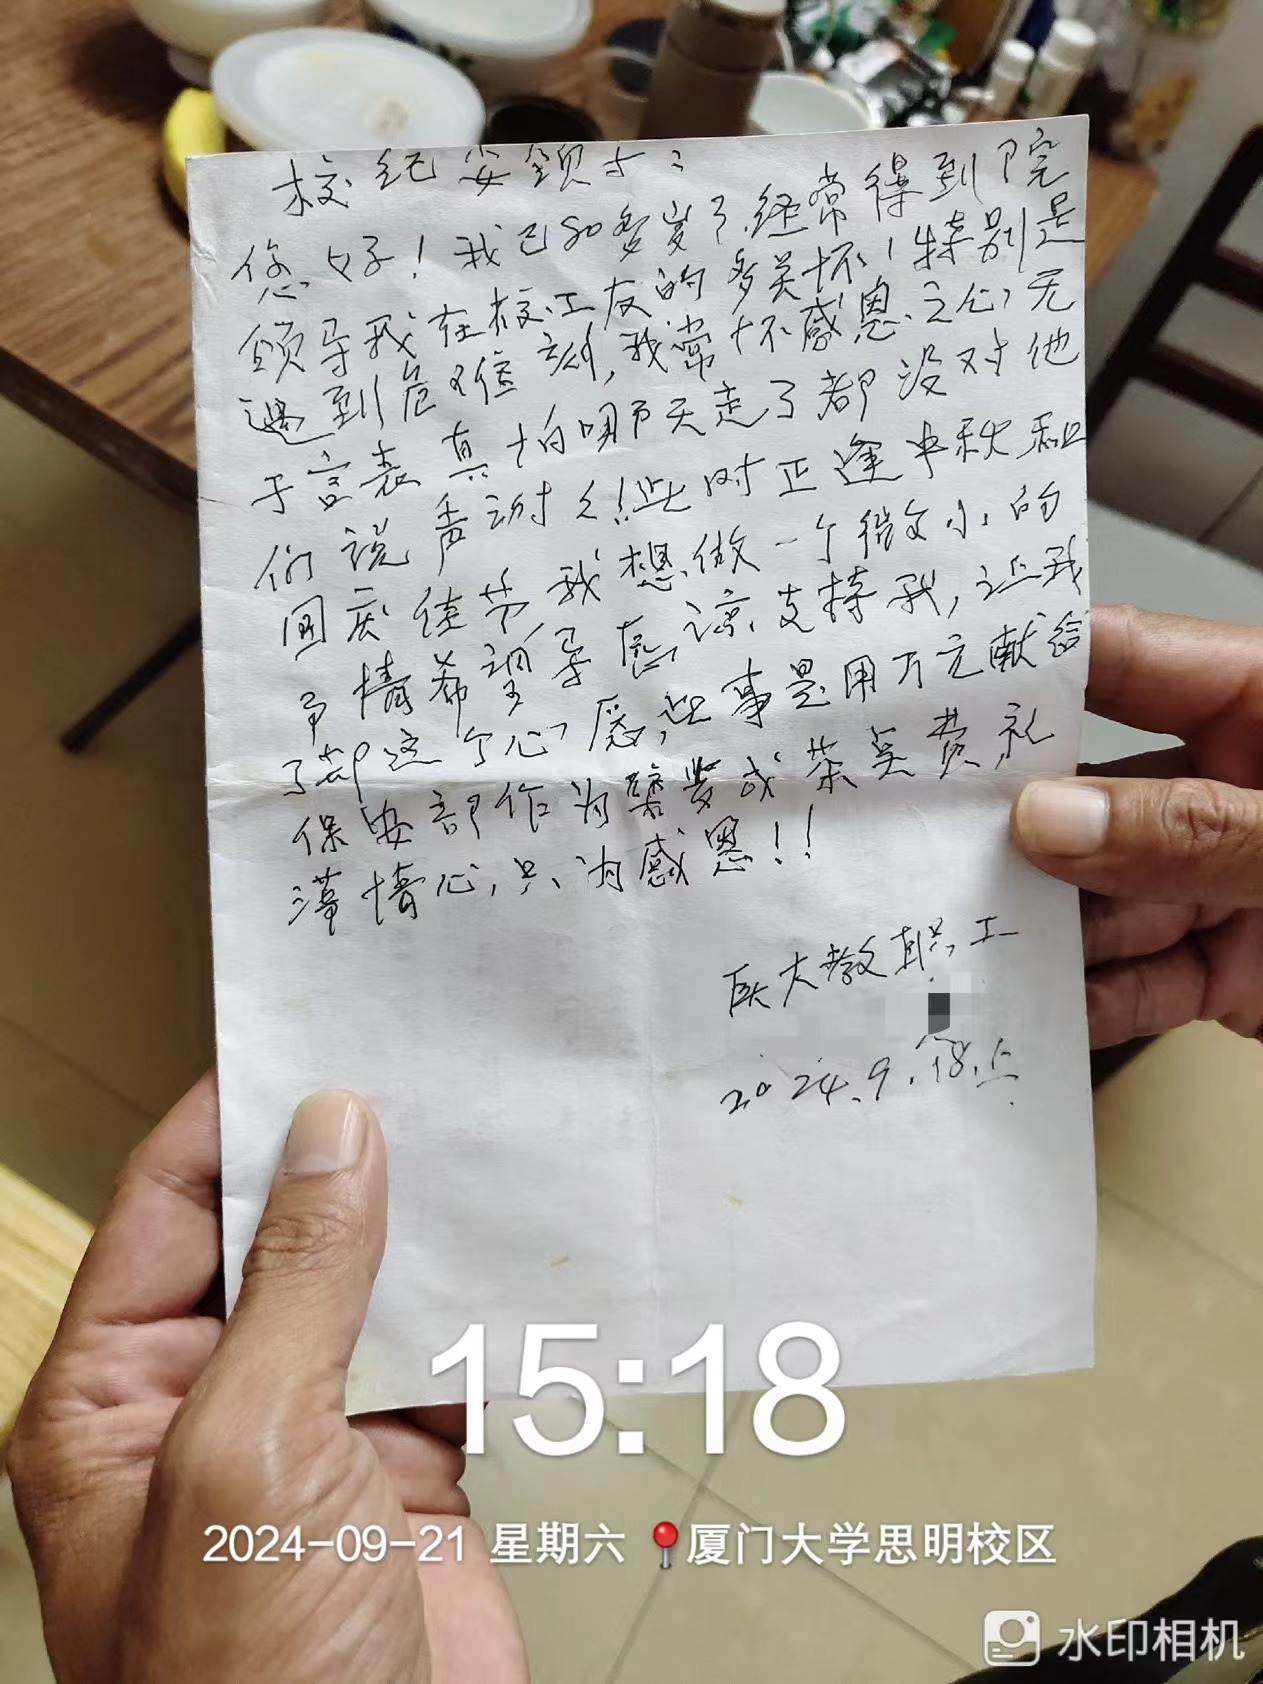 校纪委领导:
您好！我已80多岁了,经常得到院
领导我在校工友的多关怀！特别是
遇到危难立刻,我常怀感恩之心,无
于言表真怕明天走了都没对他
们说声谢谢！此时正逢中秋和
国庆佳节,我想做一个微小的
事情希望导愿谅支持我,让我
了却这个心愿,此事是用万元献给
保安部作为 或茶点费,礼
薄情心,只为感恩！！
厦大教职工
2024.9.18.上
15:18
2024-09-21 星期六 厦门大学思明校区
水印相机